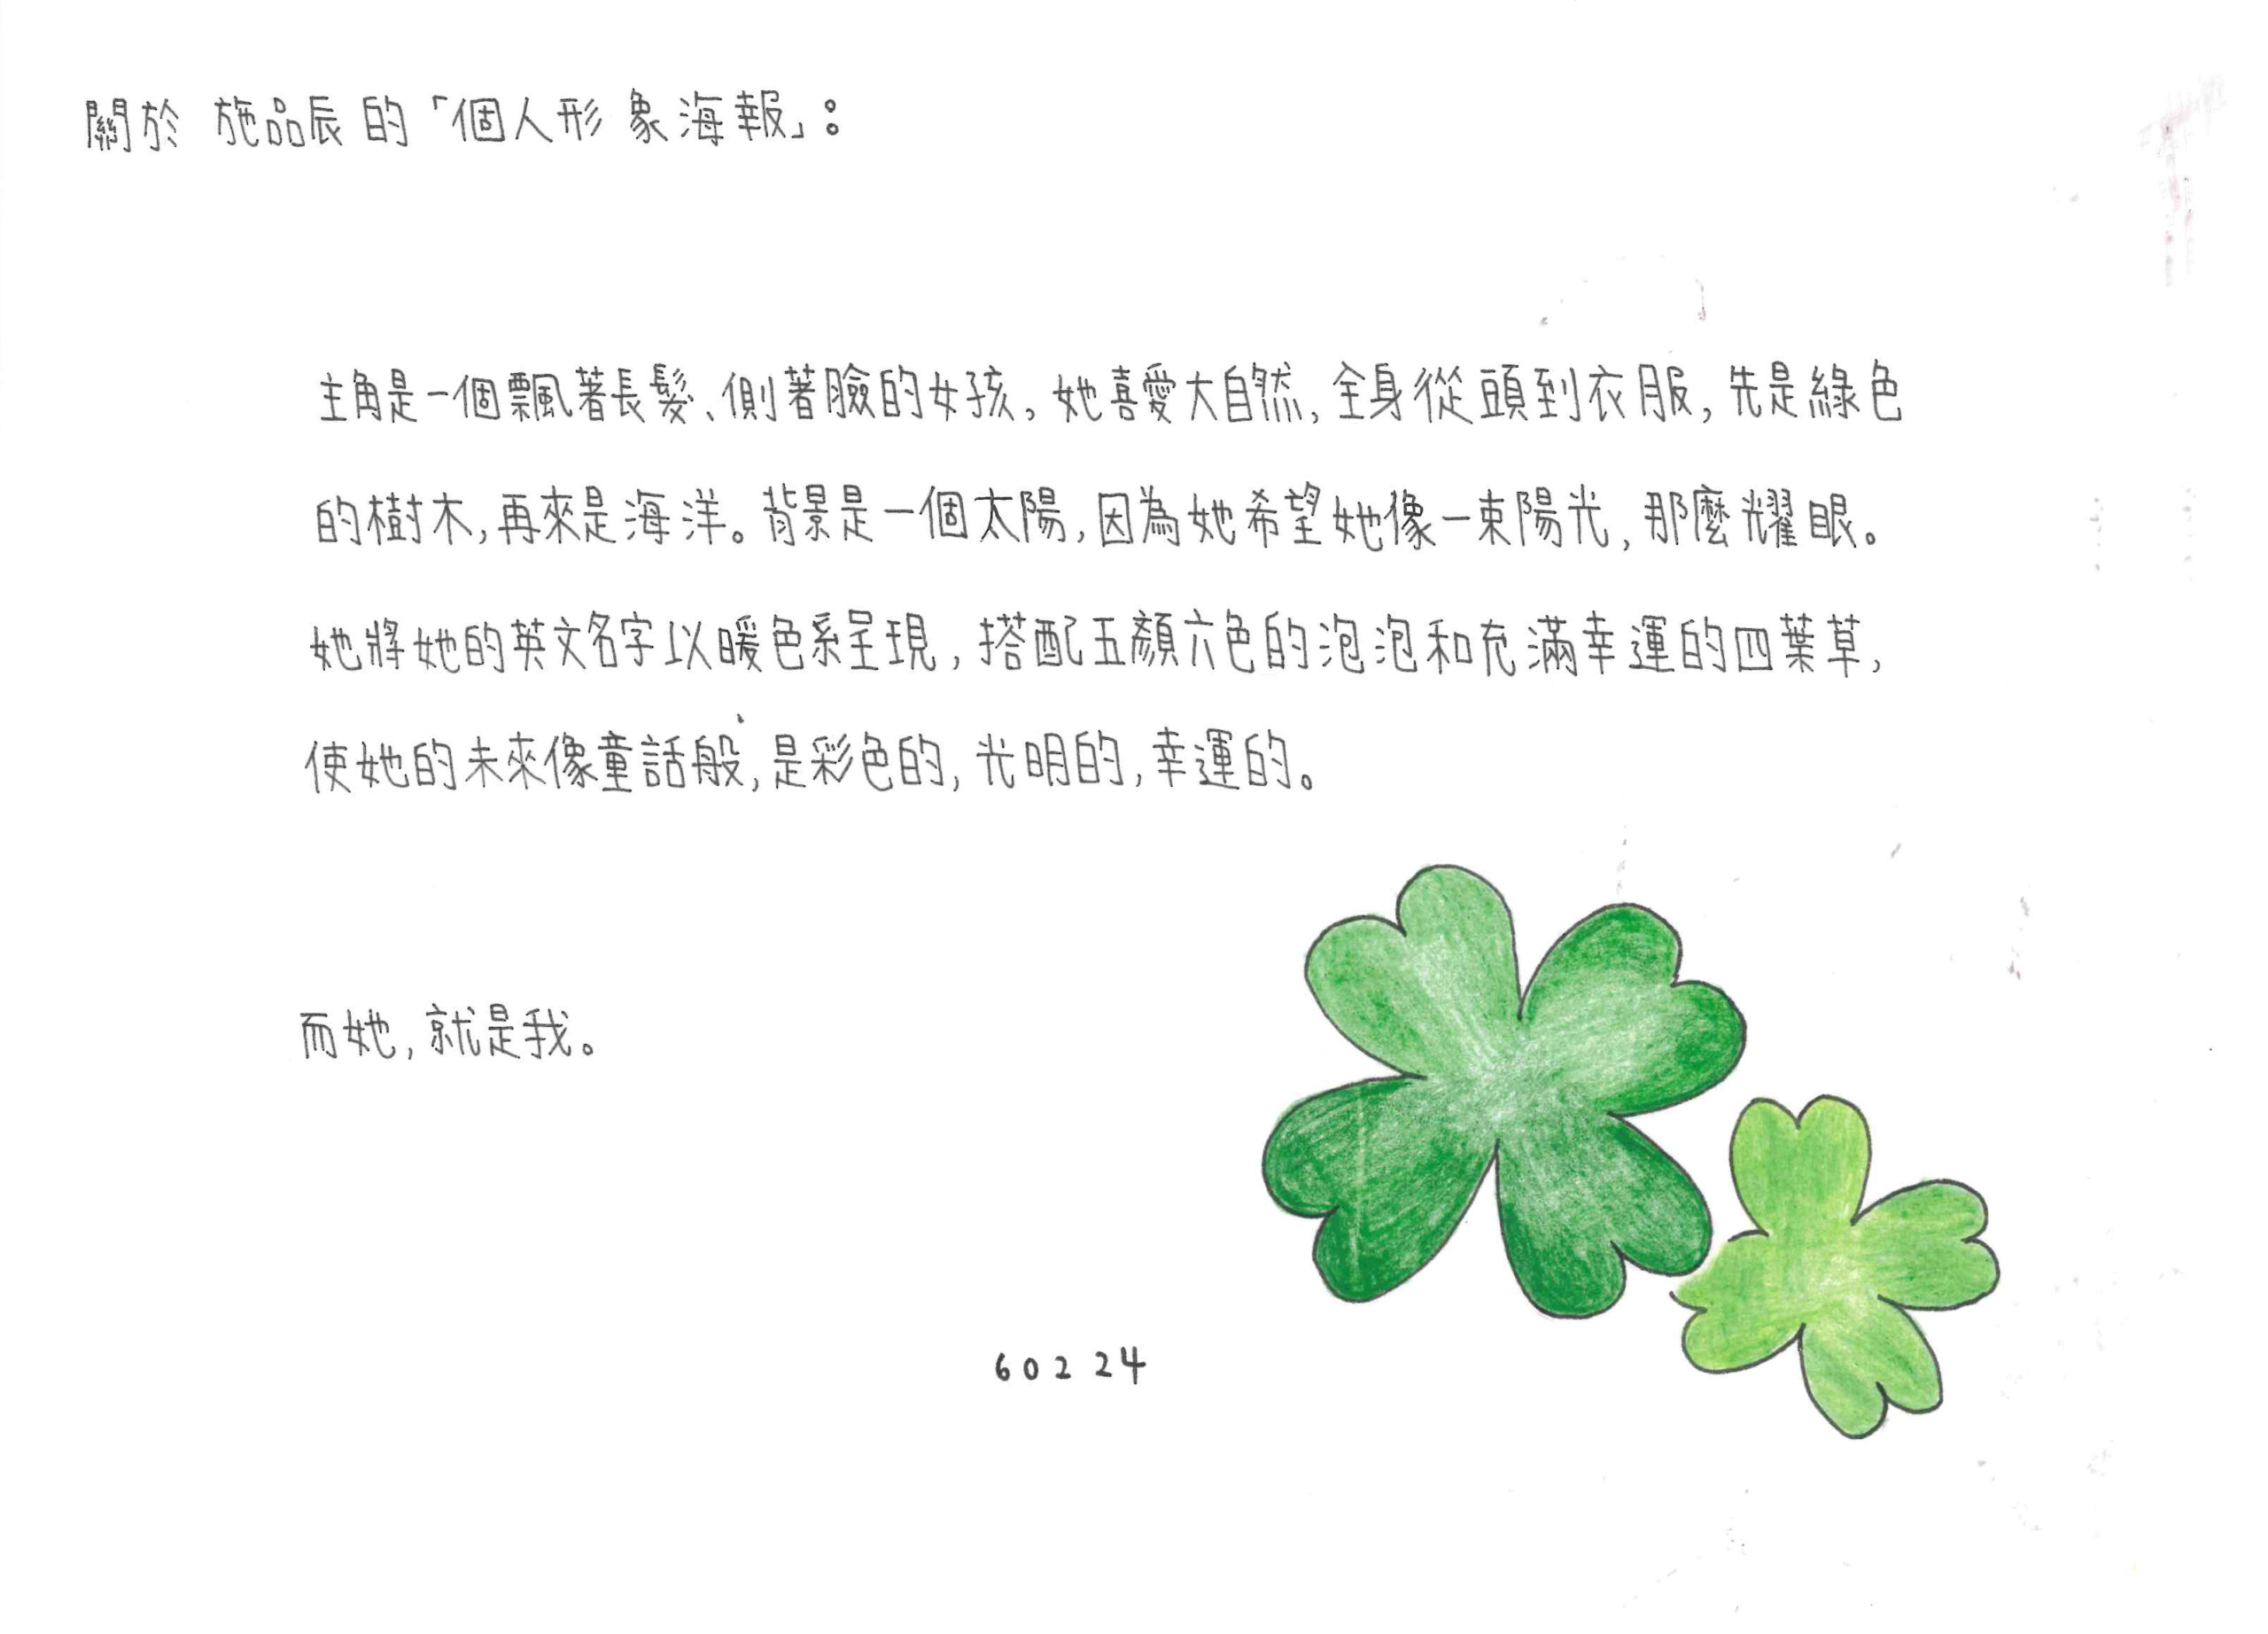 關於 施品辰 的「個人形象海報」：
主角是一個飄著長髮、側著臉的女孩，她喜愛大自然，全身從頭到衣服，先是綠色
的樹木，再來是海洋。背景是一個太陽，因為她希望她像一束陽光，那麼耀眼。
她將她的英文名字以暖色系呈現，搭配五顏六色的泡泡和充滿幸運的四葉草，
使她的未來像童話般，是彩色的，光明的，幸運的。
而她，就是我。
60224